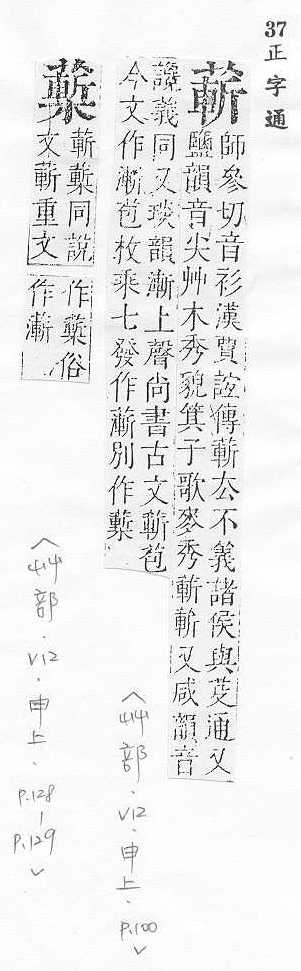 37正字通
蔪
師參切音衫漢賈誼傳蔪去不義諸侯與芟通又
鹽韻音尖艸木秀貌箕子歌麥秀蔪蔪又咸韻音
讒義同又琰韻漸上聲尚書古文蔪苞
今文作漸苞枚乘七發作蔪別作蔪
蔪同說
文蔪重文
作蔪俗
作漸
〈艸部．V12．申上．P.100〉
〈艸部．V12．申上．P.128-P.129〉